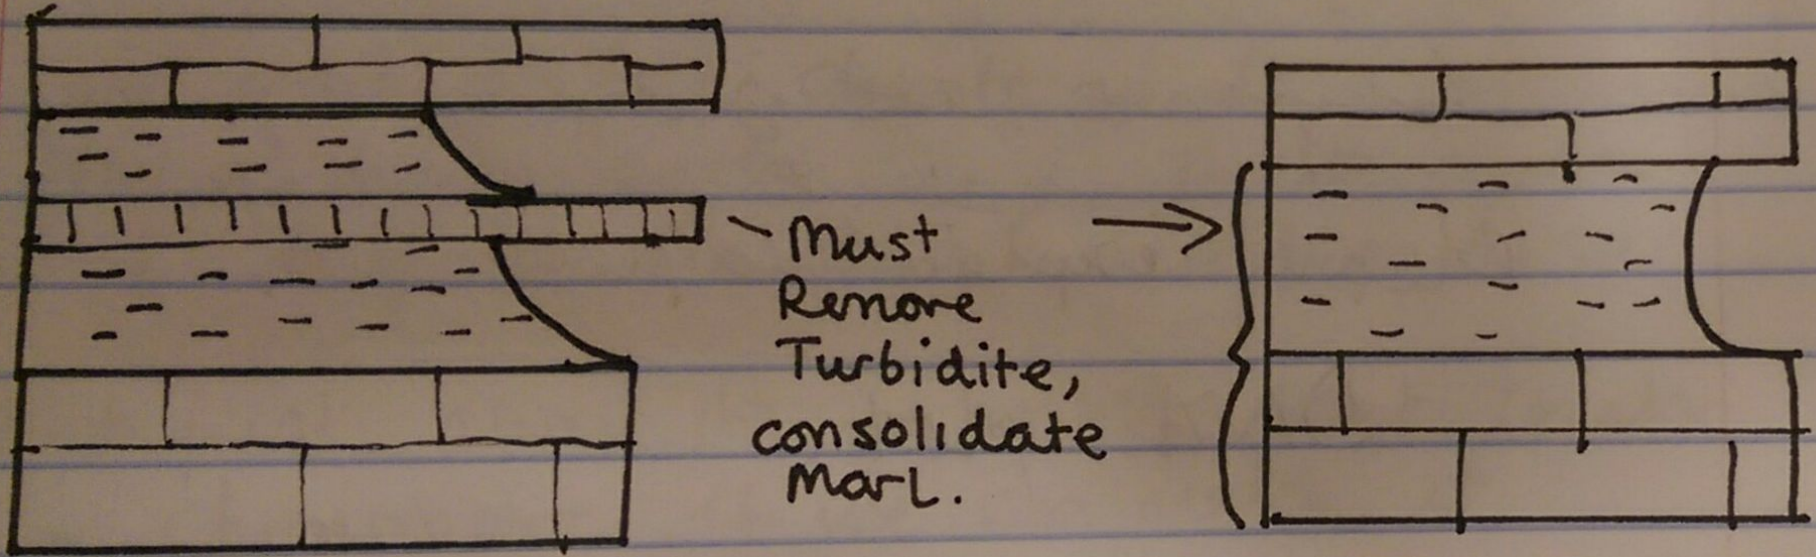 Must
Remove
Turbidite,
consolidate
Marl.